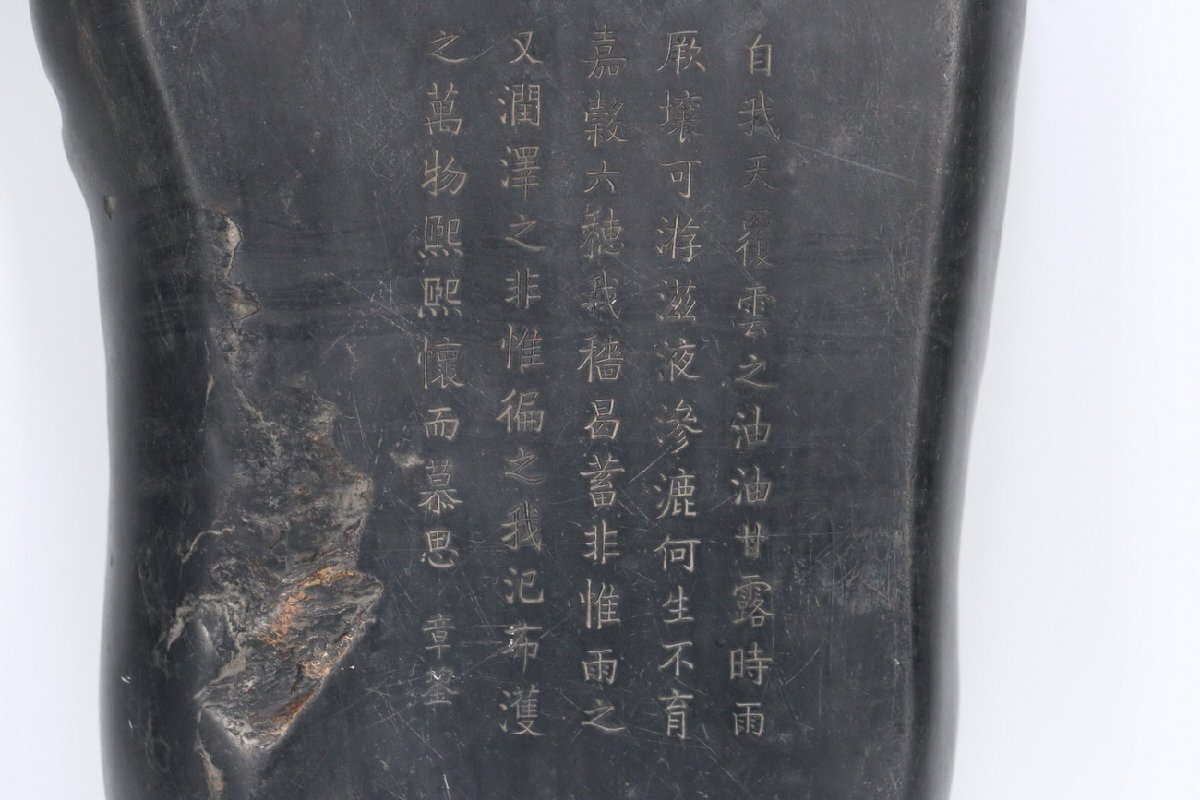 自我天覆雲之油油甘露時雨
厥壤可游滋液滲漉何生不育
嘉穀六穗我穡曷蓄非惟雨之
又潤澤之非惟徧之我汜布濩
之萬物熙熙懷而慕思
章鋆